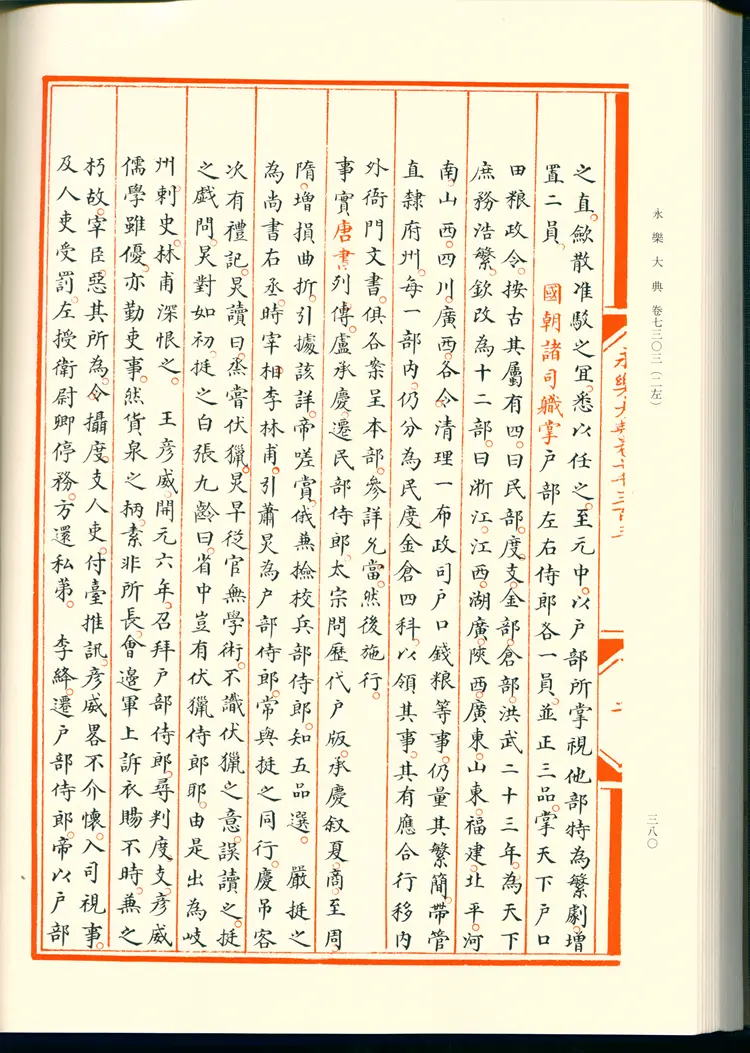 永樂大典 卷七三〇三(二左)
三八〇
永樂大典卷七千三百三
之直。歛散准駁之冝。悉以任之。至元中。以户部所掌視他部特為繁劇。增
置二員。 國朝諸司職掌户部左右侍郎各一員。並正三品。掌天下户口
田粮政令。按古其屬有四。曰民部。度支。金部。倉部。洪武二十三年。為天下
庶務浩繁。欽改為十二部。曰浙江。江西。湖廣。陝西。廣東。山東。福建。北平。河
南。山西。四川。廣西。各令清理一布政司户口錢粮等事。仍量其繁簡。帶管
直隷府州。每一部内。仍分為民度金倉四科。以領其事。其有應合行移内
外衙門文書。俱各案呈本部。參詳允當。然後施行。
事實唐書列傳。盧承慶。遷民部侍郎。太宗問歷代户版。承慶叙夏。商。至周
隋。增損曲折。引據該詳。帝嗟賞。俄兼撿校兵部侍郎。知五品選。 嚴挺之
為尚書右丞。時宰相李林甫。引蕭炅為户部侍郎。常與挺之同行。慶吊客
次有禮記。炅讀曰。烝嘗伏獵。炅早從官無學術。不識伏獵之意。誤讀之。挺
之戱問。炅對如初。挺之白張九齡曰。省中豈有伏獵侍郎耶。由是出為岐
州刺史。林甫深恨之。 王彦威。開元六年。召拜户部侍郎。尋判度支。彦威
儒學雖優。亦勤吏事。然貨泉之柄。素非所長。會邉軍上訴衣賜不時。兼之
朽故。宰臣。惡其所為。令攝度支人吏。付臺推訊。彦威畧不介懷。入司視事。
及人吏受罰。左授衛尉卿停務。方還私第。 李絳。遷户部侍郎。帝以户部